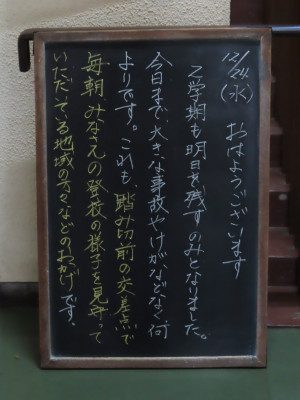 12/24(水)
おはようございます
2学期も明日を残すのみとなりました。
今日まで、大きな事故やけがなどなく、何
よりです。これも、踏み切前の交差点で
毎朝、みなさんの登校の様子を見守って
いただいている地域の方々などのおかげです。